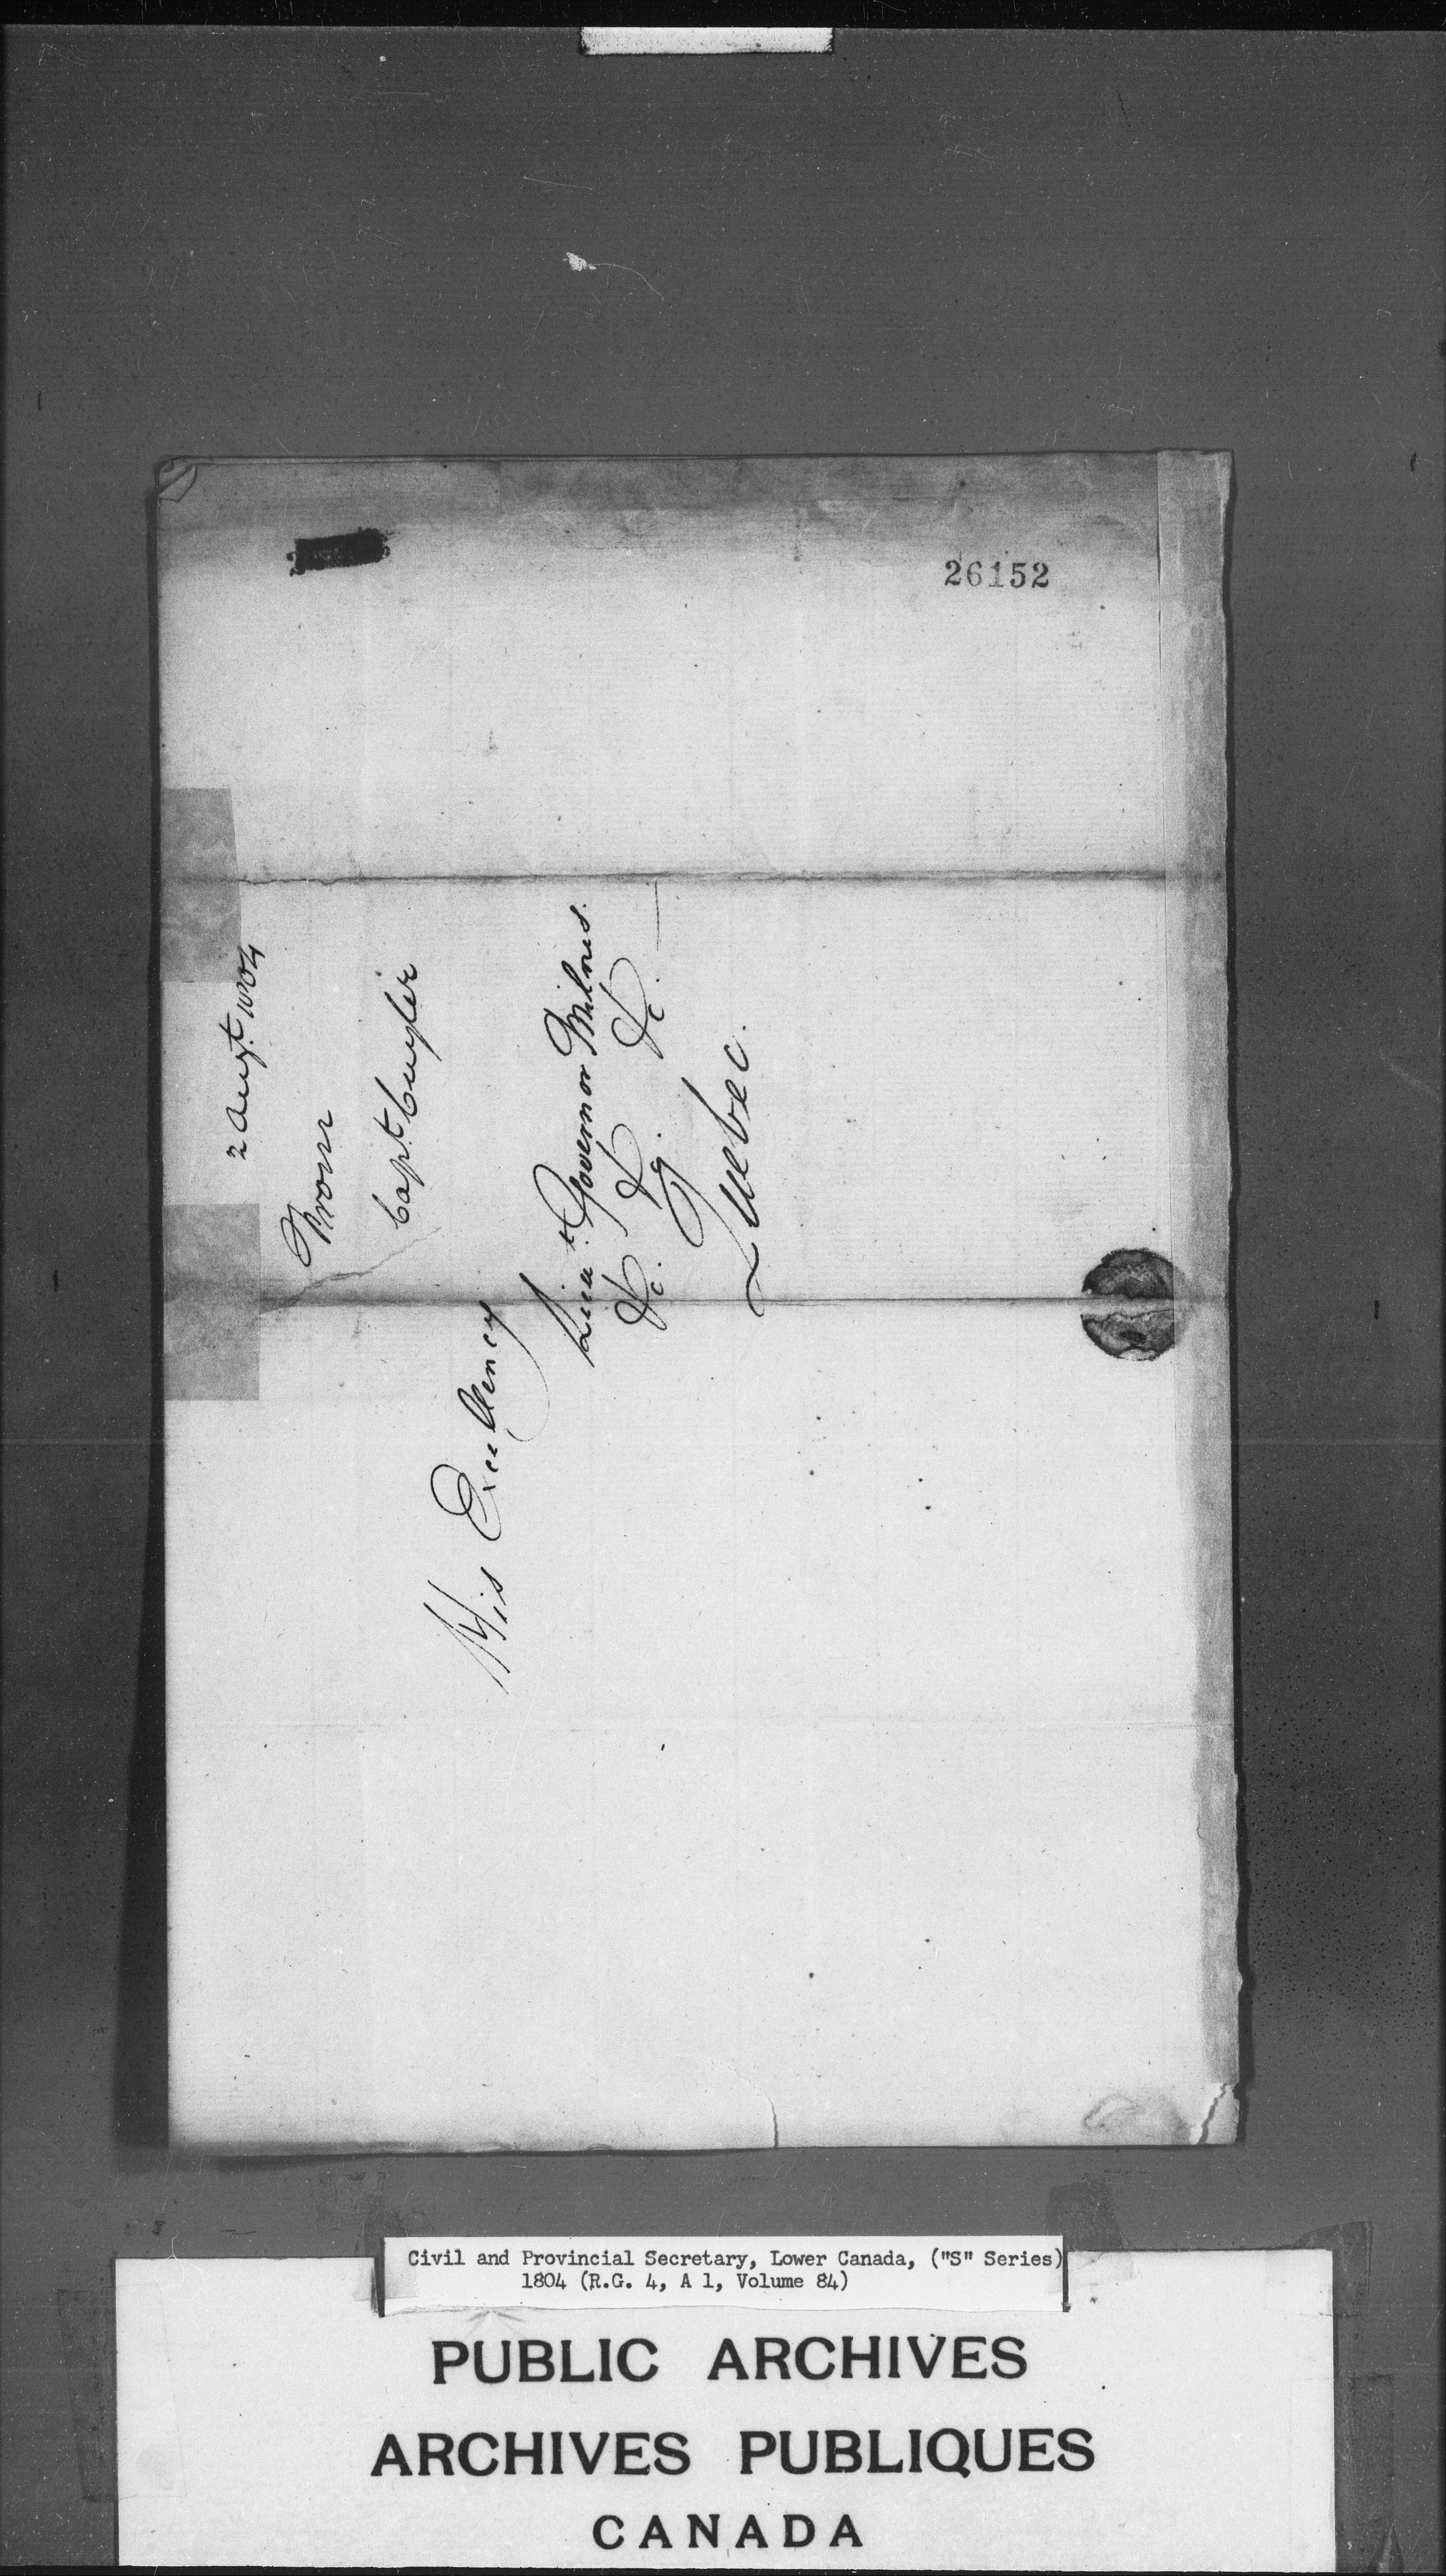 26152
2 Augt. 1804
From
Capt. Cuyler
His Excellency
Lieut. Governor Milnes.
&c. &c. &c.
Quebec.
Civil and Provincial Secretary, Lower Canada, ("S" Series)
1804 (R.G. 4, A 1, Volume 84)
PUBLIC ARCHIVES
ARCHIVES PUBLIQUES
CANADA